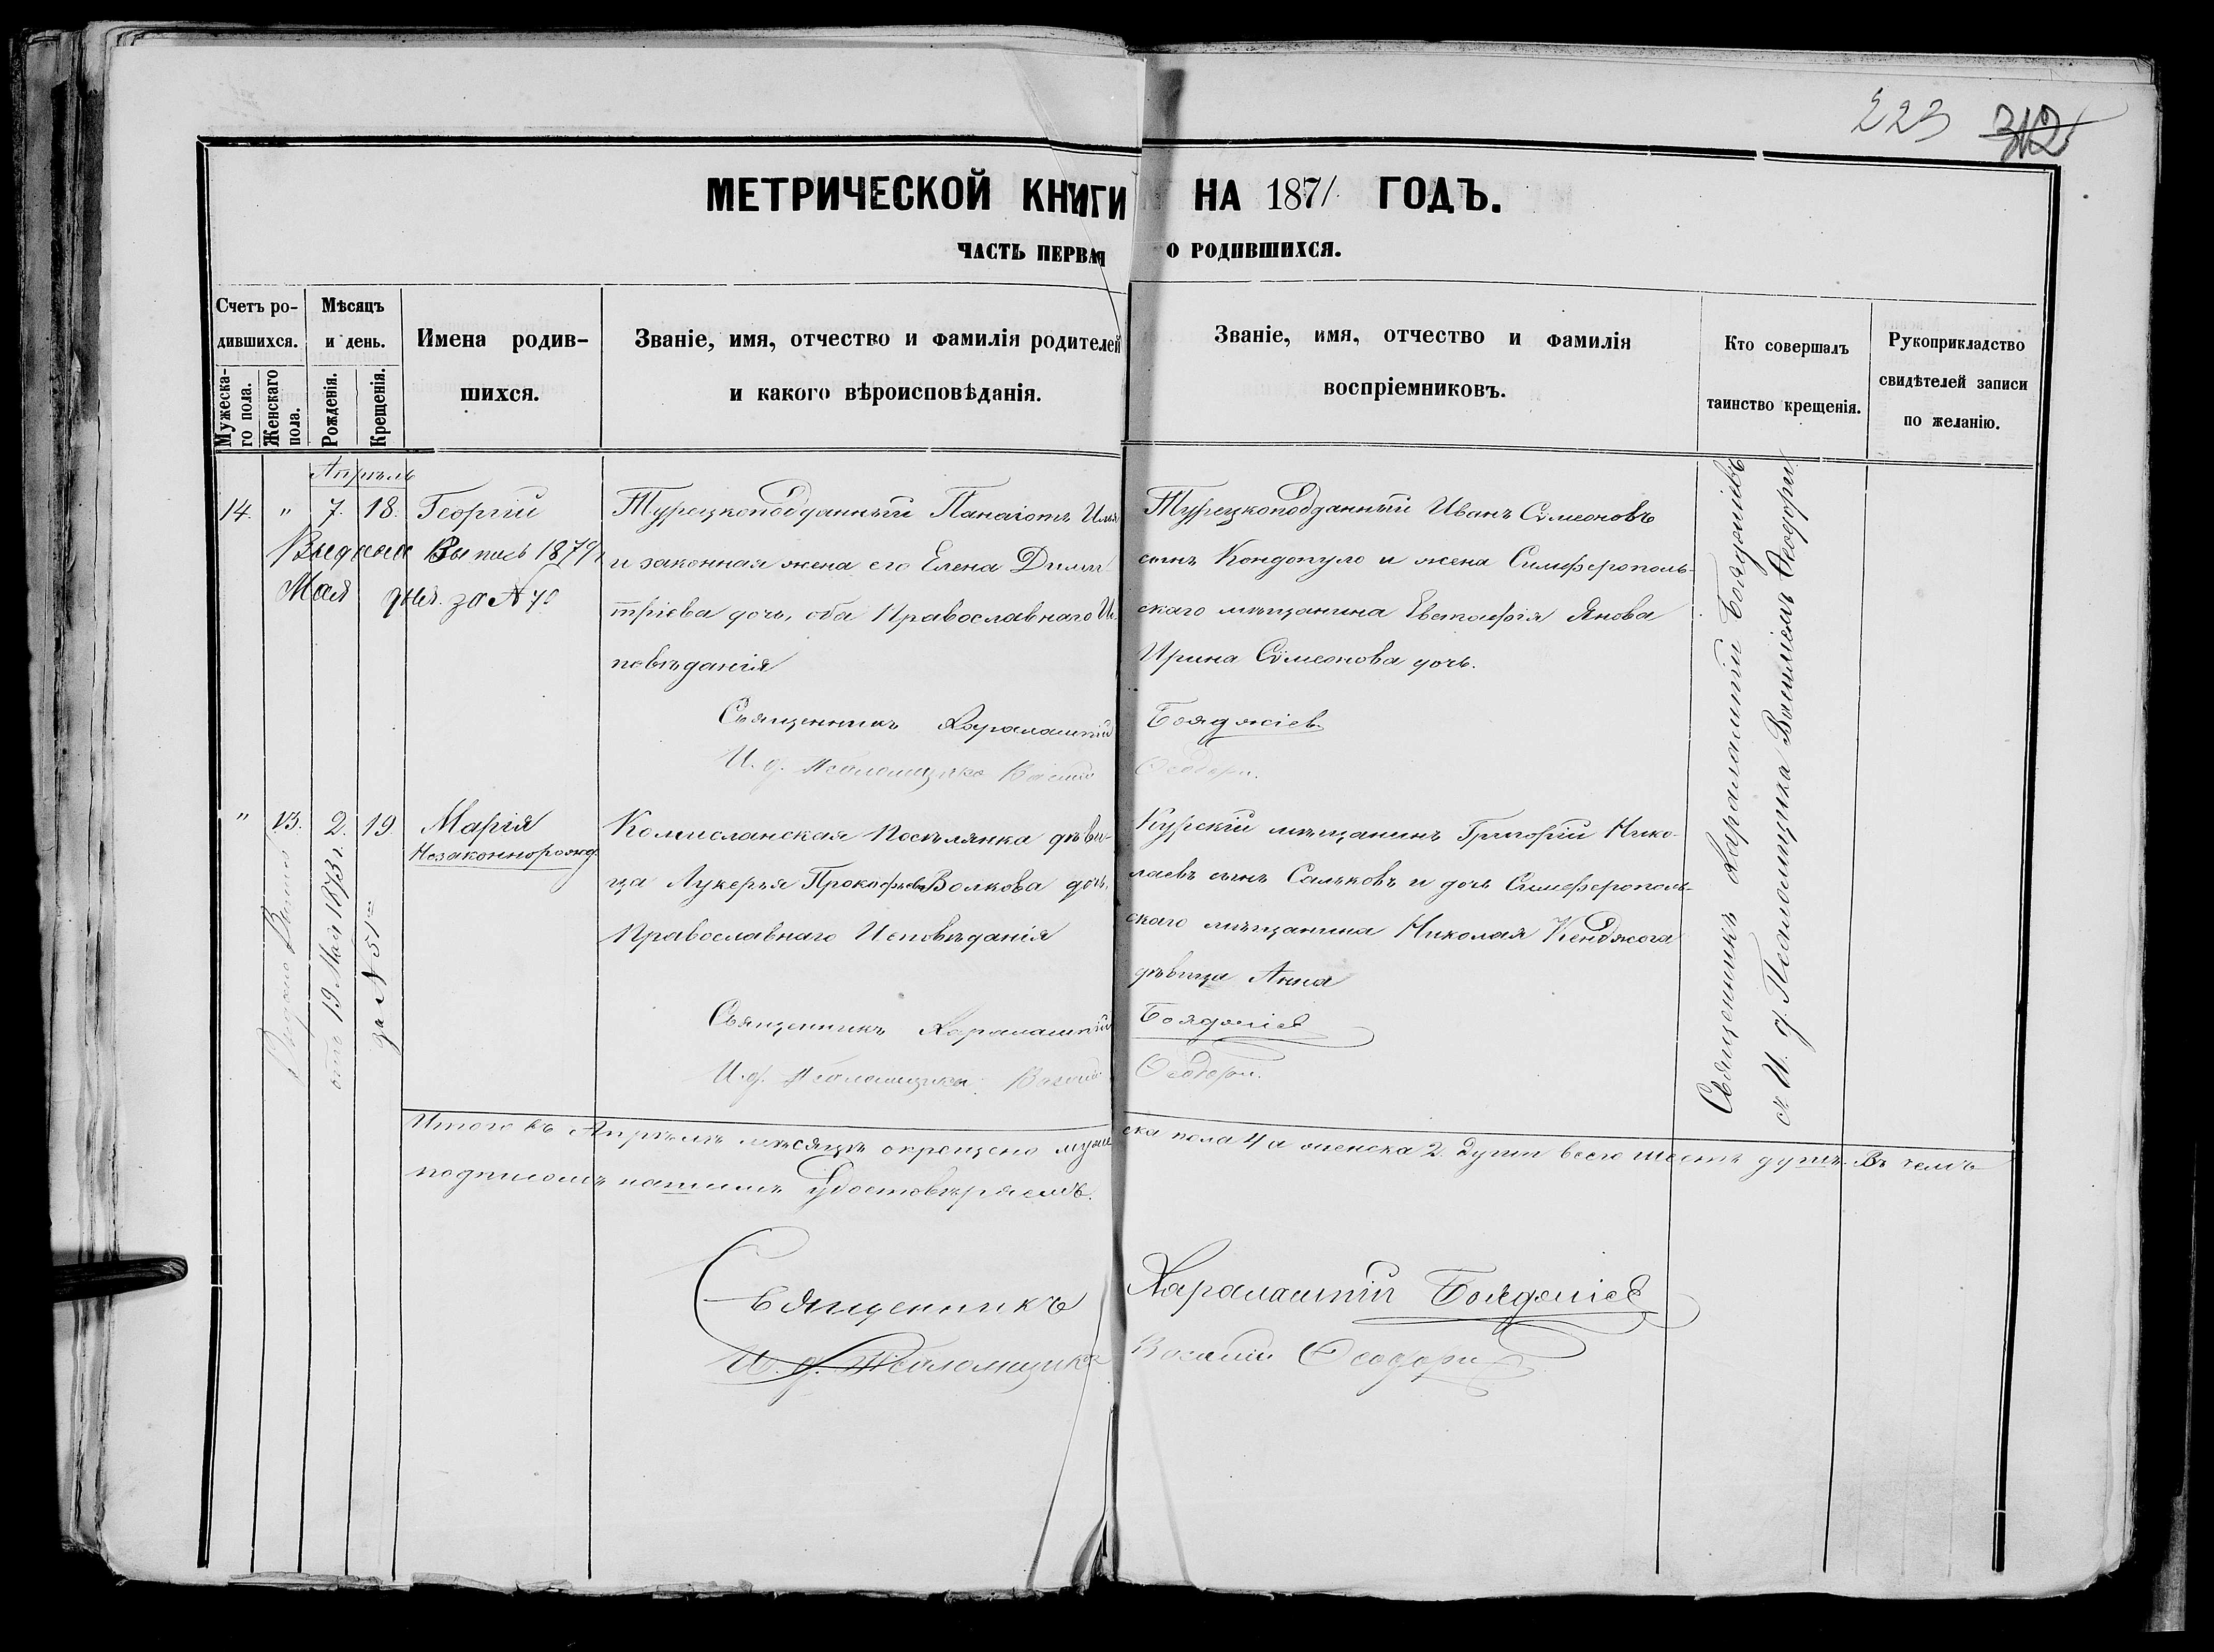 223 312
МЕТРИЧЕСКОЙ КНИГИ НА 1871 ГОДЪ.
ЧАСТЬ ПЕРВАЯ О РОДИВШИХСЯ.
Счетъ ро-
дившихся.
Мужеска-
го пола.
Женскаго
пола.
Мѣсяцъ
и день.
Рожденія.
Крещенія.
Имена родив-
шихся.
Званіе, имя, отчество и фамилія родителей
и какого вѣроисповѣданія.
Званіе, имя, отчество и фамилія
воспріемниковъ.
Кто совершалъ
таинство крещенія.
Рукоприкладство
свидѣтелей записи
по желанію.
Апрѣль
14. " 7. 18. Георгій
Выдана Выпись 1879
Мая дня. за №
Турецкоподданный Панаіотъ
и законная жена его Елена Дими-
тріева дочь, оба Православнаго Ис
повѣданія
Священникъ Харалампій Бояджіев
И. д. Псаломщика Васил Ѳеодори.
Турецкоподданный Иванъ Сѵмеоновъ
сынъ Кондопуло и жена Симферополь-
скаго мѣщанина Янова
Ирина Сѵмеонова дочь.
" 13. 2. 19 Марія
Незаконнорожд.
Выдана Выпись
отъ 19 Мая 1873 г.
за № 51
поселянка дѣви-
ца Лукерья Прокофьева Волкова дочь,
Православнаго Исповѣданія
Священникъ Харалампій Бояджіев
И. д. Псаломщика Васил Ѳеодори.
Курскій мѣщанинъ Григорій Нико-
лаевъ сынъ Сальковъ и дочь Симферополь-
скаго мѣщанина Николая
дѣвица Анна
Священникъ Харалампій Бояджіевъ
съ И. д. Псаломщика Василіемъ Ѳеодори
Итого въ Апрѣлѣ мѣсяцѣ окрещено муже ска пола 4 а женска 2. души всего шесть душъ. Въ чемъ
подписомъ нашимъ Удостовѣряемъ.
Священникъ Харалампій Бояджіев
И. д. Псаломщика Василій Ѳеодори